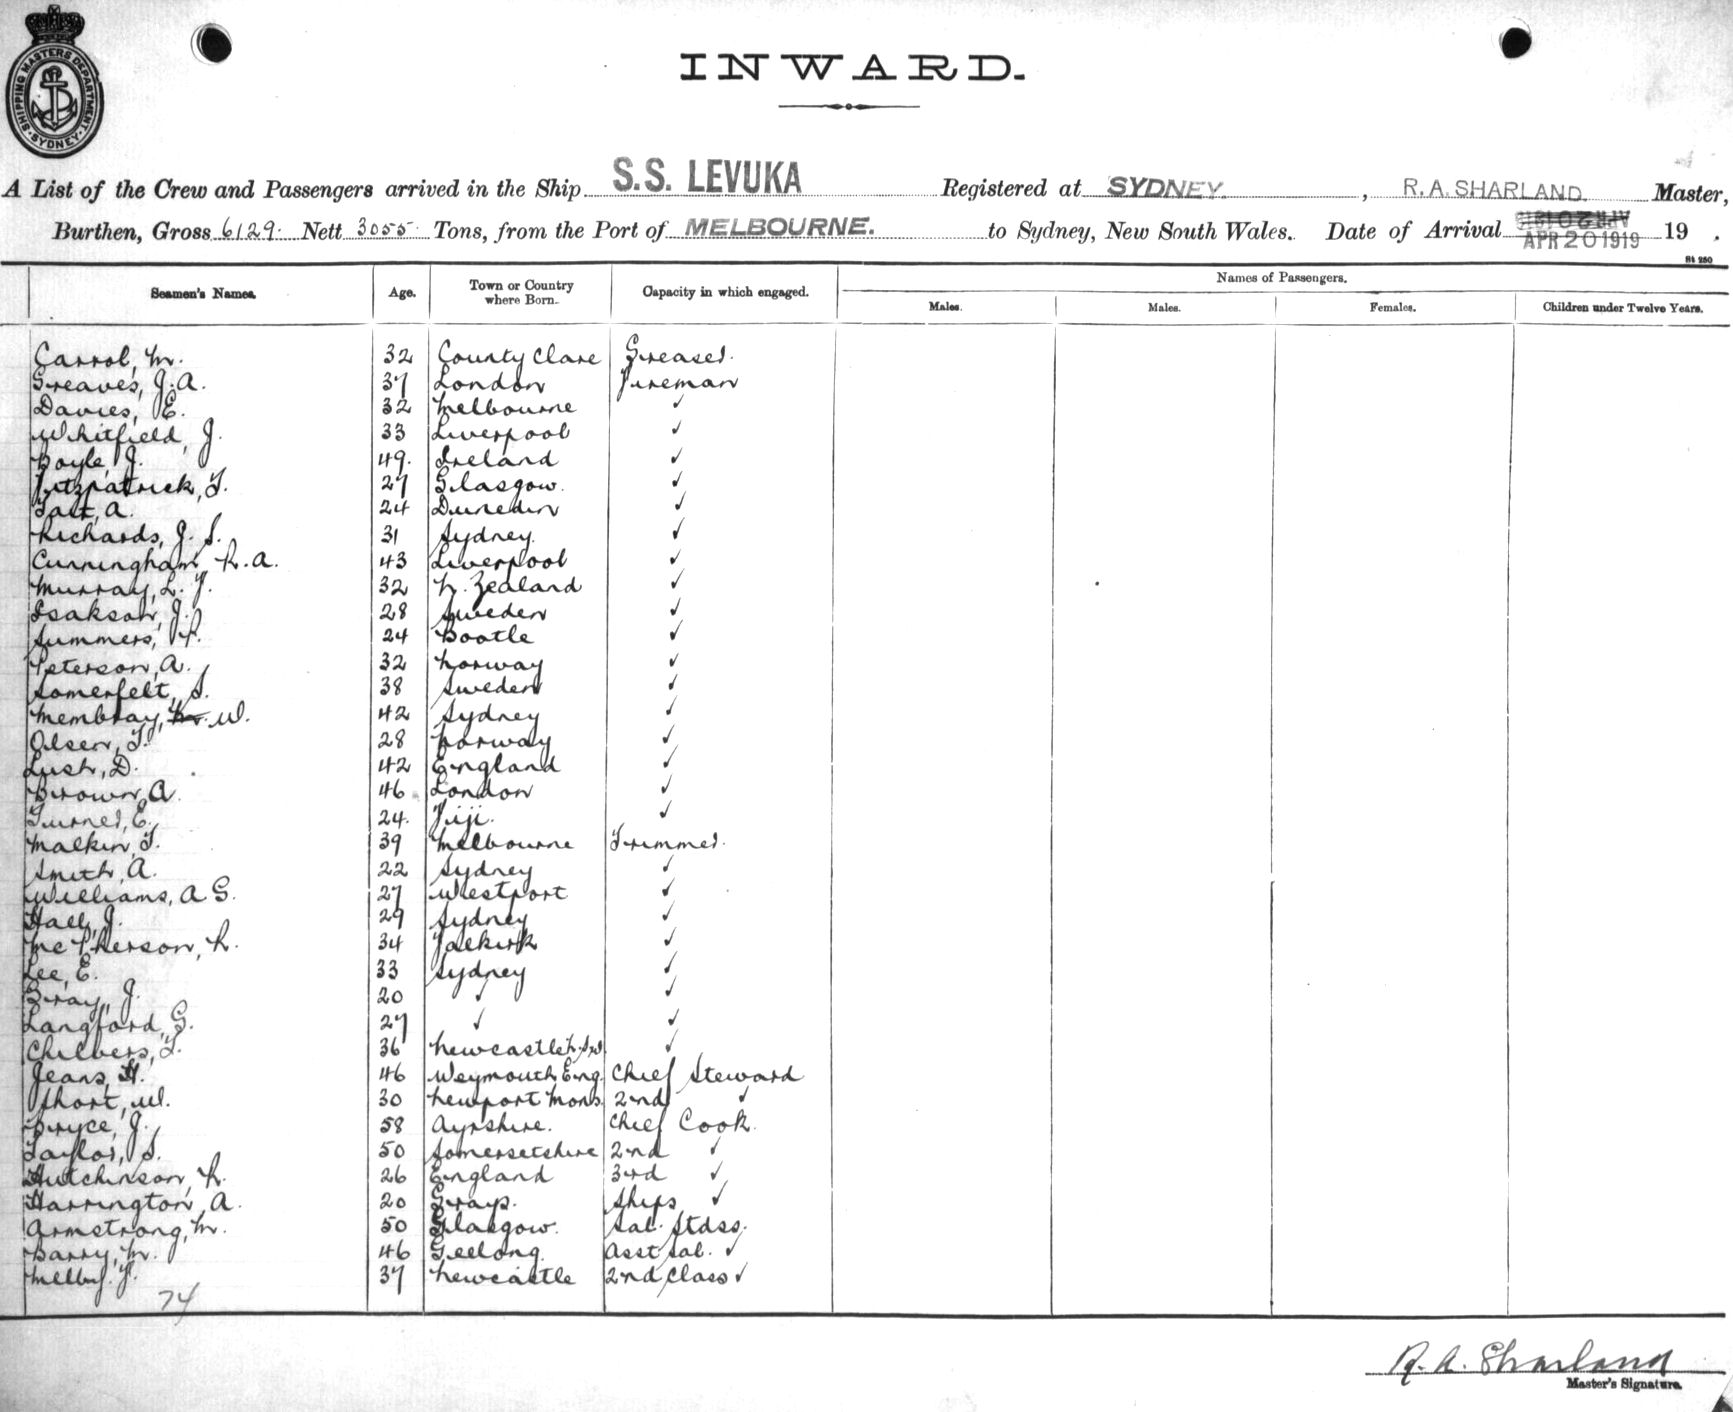 SHIPPING MASTERS DEPARTMENT SYDNEY
INWARD.
A List of the Crew and Passengers arrived in the Ship S.S. LEVUKA Registered at SYDNEY. , R.A. SHARLAND. Master,
Burthen, Gross 6129. Nett 3055. Tons, from the Port of MELBOURNE. to Sydney, New South Wales. Date of Arrival APR 20 1919 19 .
St 250
Seamen's Names. Age. Town or Country where Born. Capacity in which engaged. Names of Passengers.
Males. Males. Females. Children under Twelve Years.
Carrol, M. 32 County Clare Greaser.
Greaves, J. A. 37 London Fireman
Davies, E. 32 Melbourne ✓
Whitfield, J. 33 Liverpool ✓
Boyle, J. 49. Ireland ✓
Fitzpatrick, T. 27 Glasgow. ✓
Tait, A. 24 Dunedin ✓
Richards, J. S. 31 Sydney. ✓
Cunningham, R. A. 43 Liverpool ✓
Murray, L. F. 32 N. Zealand ✓
Isakson, J. 28 Sweden ✓
Summers, 24 Bootle ✓
Peterson, A. 32 Norway ✓
Somerfelt, S. 38 Sweden ✓
Membray, W. 42 Sydney ✓
Olsen, T. 28 Norway ✓
Lush, D. 42 England ✓
Brown, A. 46 London ✓
Turner, E. 24. Fiji. ✓
Malkin, T. 39 Melbourne Trimmer.
Smith, A. 22 Sydney ✓
Williams, A G. 27 Westport ✓
Hall, J. 29 Sydney ✓
McPherson, R. 34 Falkirk ✓
Lee, E. 33 Sydney ✓
Gray, J. 20 ✓ ✓
Langford, G. 27 ✓ ✓
Chilvers, T. 36 Newcastle N.S.W. ✓
Jeans, H. 46 Weymouth Eng. Chief Steward
Short, W. 30 Newport Mons. 2nd ✓
Bryce, J. 58 Ayrshire. Chief Cook.
Taylor, S. 50 Somersetshire 2nd ✓
Hutchinson, R. 26 England 3rd ✓
Harrington, A. 20 Grays. Ships ✓
Armstrong, M. 50 Glasgow. Sal. Stdss.
Barry, M. 46 Geelong. Asst Sal. ✓
37 Newcastle 2nd Class ✓
74
R. A. Sharland
Master's Signature.